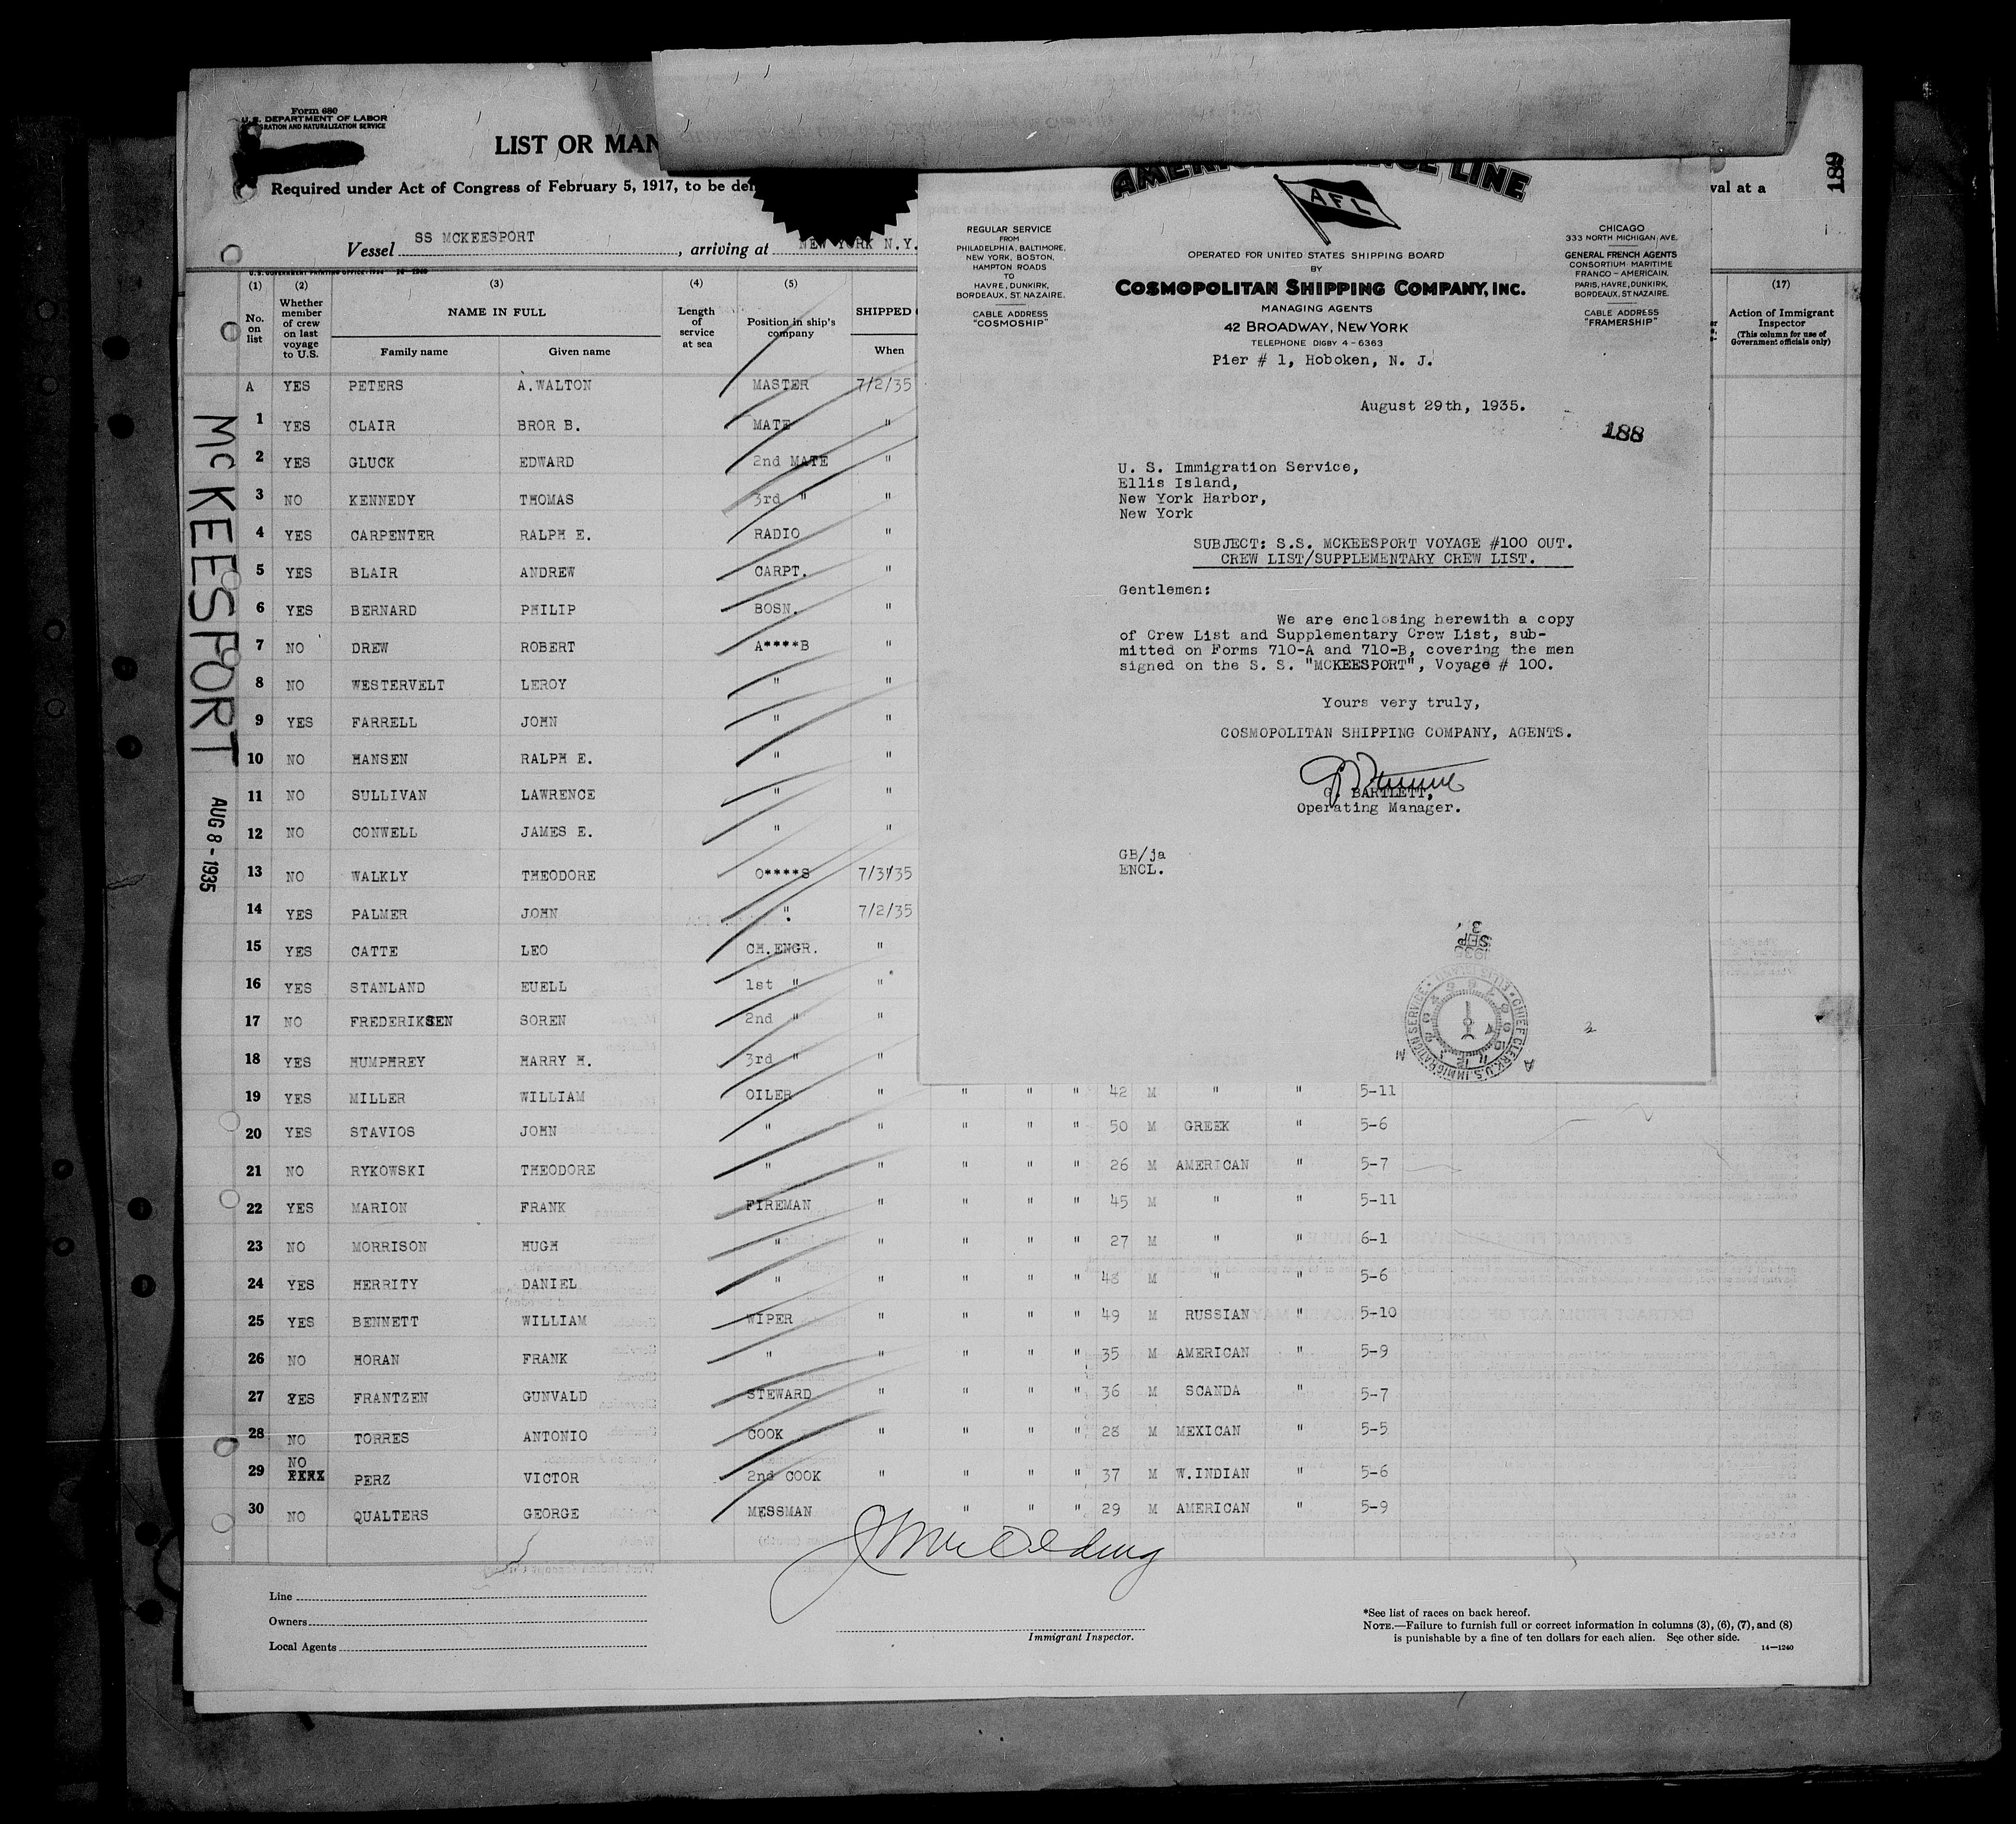 Form 680
U. S. DEPARTMENT OF LABOR
RATION AND NATURALIZATION SERVICE
LIST OR MAN
Required under Act of Congress of February 5, 1917, to be del
val at a
189
Vessel SS MCKEESPORT, arriving at NEW YORK N.Y.
(1) (2) (3) (4) (5) (17)
No. on list
Whether member of crew on last voyage to U.S.
NAME IN FULL
Family name Given name
Length of service at sea
Position in ship's company
SHIPPED
When
Action of Immigrant Inspector
(This column for use of Government officials only)
A YES PETERS A.WALTON MASTER 7/2/35
1 YES CLAIR BROR B. MATE "
2 YES GLUCK EDWARD 2nd MATE "
3 NO KENNEDY THOMAS 3rd " "
4 YES CARPENTER RALPH E. RADIO "
5 YES BLAIR ANDREW CARPT. "
6 YES BERNARD PHILIP BOSN. "
7 NO DREW ROBERT A****B "
8 NO WESTERVELT LEROY " "
9 YES FARRELL JOHN " "
10 NO HANSEN RALPH E. " "
11 NO SULLIVAN LAWRENCE " "
12 NO CONWELL JAMES E. " "
13 NO WALKLY THEODORE O****S 7/31/35
14 YES PALMER JOHN " 7/2/35
15 YES CATTE LEO CH.ENGR. "
16 YES STANLAND EUELL 1st " "
17 NO FREDERIKSEN SOREN 2nd " "
18 YES HUMPHREY HARRY H. 3rd " "
19 YES MILLER WILLIAM OILER " " " " 42 M " " 5-11
20 YES STAVIOS JOHN " " " " " 50 M GREEK " 5-6
21 NO RYKOWSKI THEODORE " " " " " 26 M AMERICAN " 5-7
22 YES MARION FRANK FIREMAN " " " " 45 M " " 5-11
23 NO MORRISON HUGH " " " " " 27 M " " 6-1
24 YES HERRITY DANIEL " " " " " 48 M " " 5-6
25 YES BENNETT WILLIAM WIPER " " " " 49 M RUSSIAN " 5-10
26 NO HORAN FRANK " " " " " 35 M AMERICAN " 5-9
27 YES FRANTZEN GUNVALD STEWARD " " " " 36 M SCANDA " 5-7
28 NO TORRES ANTONIO COOK " " " " 28 M MEXICAN " 5-5
29 NO PERZ VICTOR 2nd COOK " " " " 37 M W.INDIAN " 5-6
30 NO QUALTERS GEORGE MESSMAN " " " 29 M AMERICAN " 5-9
Line
Owners
Local Agents
Immigrant Inspector.
*See list of races on back hereof.
NOTE.—Failure to furnish full or correct information in columns (3), (6), (7), and (8)
is punishable by a fine of ten dollars for each alien. See other side.
14—1240
McKEESPORT
AUG 8 - 1935
LINE
AFL
REGULAR SERVICE
FROM
PHILADELPHIA, BALTIMORE,
NEW YORK, BOSTON,
HAMPTON ROADS
TO
HAVRE, DUNKIRK,
BORDEAUX, ST. NAZAIRE.
CABLE ADDRESS
"COSMOSHIP"
OPERATED FOR UNITED STATES SHIPPING BOARD
BY
COSMOPOLITAN SHIPPING COMPANY, INC.
MANAGING AGENTS
42 BROADWAY, NEW YORK
TELEPHONE DIGBY 4-6363
CHICAGO
333 NORTH MICHIGAN AVE.
GENERAL FRENCH AGENTS
CONSORTIUM MARITIME
FRANCO-AMERICAIN.
PARIS, HAVRE, DUNKIRK,
BORDEAUX, ST. NAZAIRE.
CABLE ADDRESS
"FRAMERSHIP"
Pier # 1, Hoboken, N. J.
August 29th, 1935.
188
U. S. Immigration Service,
Ellis Island,
New York Harbor,
New York
SUBJECT: S.S. MCKEESPORT VOYAGE #100 OUT.
CREW LIST/SUPPLEMENTARY CREW LIST.
Gentlemen:
We are enclosing herewith a copy
of Crew List and Supplementary Crew List, sub-
mitted on Forms 710-A and 710-B, covering the men
signed on the S. S. "MCKEESPORT", Voyage # 100.
Yours very truly,
COSMOPOLITAN SHIPPING COMPANY, AGENTS.
G. BARTLETT,
Operating Manager.
GB/ja
ENCL.
SEP 3
1935
CHIEF CLERK, U.S. IMMIGRATION SERVICE · ELLIS ISLAND